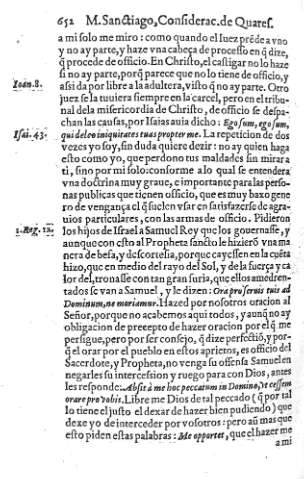 652 M. Sanctiago, Considerac. de Quares.
a mi solo me miro: como quando el Iuez prēde a vno
y no ay parte, y haze vna cabeça de processo en q̃ dize,
q̃ procede de officio. En Christo, el castigar no lo haze
si no ay parte, porq̃ parece que no lo tiene de officio, y
Ioan. 8.
assi da por libre a la adultera, visto q̃ no ay parte. Otro
juez se la tuuiera siempre en la carcel, pero en el tribu-
nal de la misericordia de Christo, de officio se despa-
chan las causas, por Isaias auia dicho: Ego sum, ego sum,
Isai. 43.
qui deleo iniquitates tuas propter me. La repeticion de dos
vezes yo soy, sin duda quiere dezir: no ay quien haga
esto como yo, que perdono tus maldades sin mirar a
ti, sino por mi solo: conforme a lo qual se entendera
vna doctrina muy graue, e importante para las perso-
nas publicas que tienen officio, que es muy baxo gene
ro de vengança el q̃ suelen vsar en satisfazerse de agra-
uios particulares, con las armas de officio. Pidieron
1. Reg. 12.
los hijos de Israel a Samuel Rey que los gouernasse, y
aunque con esto al Propheta sancto le hizierō vna ma
nera de befa, y descortesia, porque cayessen en la cuēta
hizo, que en medio del rayo del Sol, y de la fuerça y ca
lor del, tronasse con tan gran furia, que ellos amedren-
tados se van a Samuel, y le dizen: Ora pro seruis tuis ad
Dominum, ne moriamur. Hazed por nosotros oracion al
Señor, porque no acabemos aqui todos, y aunq̃ no ay
obligacion de precepto de hazer oracion por el q̃ me
persigue, pero por ser consejo, q̃ dize perfectiō, y por-
q̃ el orar por el pueblo en estos aprietos, es officio del
Sacerdote, y Propheta, no venga su offensa Samuel en
negarles su intercession y ruego para con Dios, antes
les responde: Absit à me hoc peccatum in Domino, vt cessem
orare pro vobis. Libre me Dios de tal peccado (q̃ por tal
lo tiene el justo el dexar de hazer bien pudiendo) que
dexe yo de interceder por vosotros: pero aū mas que
esto piden estas palabras: Me oportet, que el hazer me
a mi